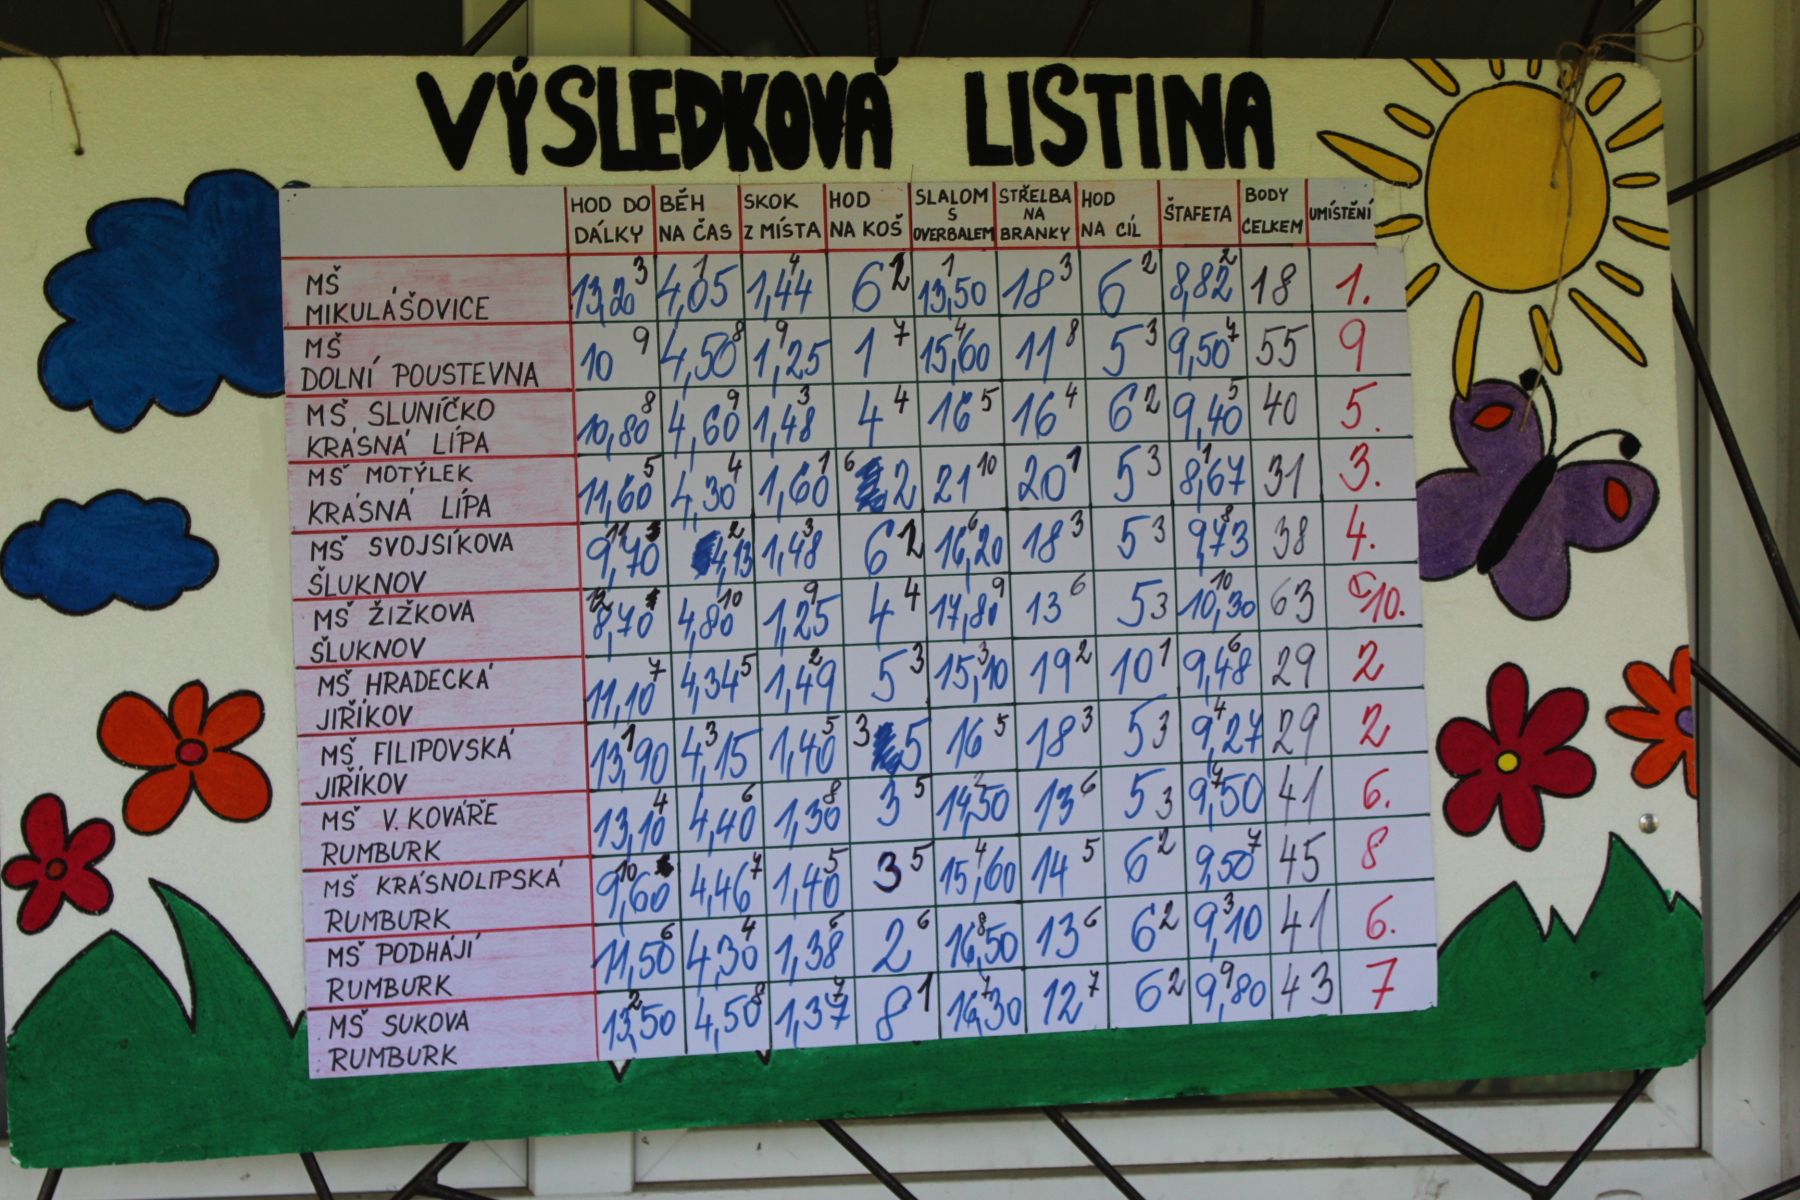 VÝSLEDKOVÁ LISTINA
HOD DO DÁLKY BĚH NA ČAS SKOK Z MÍSTA HOD NA KOŠ SLALOM S OVERBALEM STŘELBA NA BRANKY HOD NA CÍL ŠTAFETA BODY CELKEM UMÍSTĚNÍ
MŠ MIKULÁŠOVICE 13,20 3 4,05 1 1,44 4 6 2 13,50 1 18 3 6 2 8,82 2 18 1.
MŠ DOLNÍ POUSTEVNA 10 9 4,50 8 1,25 9 1 7 15,60 4 11 8 5 3 9,50 7 55 9
MŠ SLUNÍČKO KRÁSNÁ LÍPA 10,80 8 4,60 9 1,48 3 4 4 16 5 16 4 6 2 9,40 5 40 5.
MŠ MOTÝLEK KRÁSNÁ LÍPA 11,60 5 4,30 4 1,60 1 6 2 21 10 20 1 5 3 8,67 1 31 3.
MŠ SVOJSÍKOVA ŠLUKNOV 9,70 11 4,13 2 1,48 3 6 2 16,20 6 18 3 5 3 9,73 8 38 4.
MŠ ŽIŽKOVA ŠLUKNOV 8,70 12 4,80 10 1,25 9 4 4 17,80 9 13 6 5 3 10,30 10 63 10.
MŠ HRADECKÁ JIŘÍKOV 11,10 7 4,34 5 1,49 2 5 3 15,10 3 19 2 10 1 9,48 6 29 2
MŠ FILIPOVSKÁ JIŘÍKOV 13,90 1 4,15 3 1,40 5 3 5 16 5 18 3 5 3 9,27 4 29 2
MŠ V. KOVÁŘE RUMBURK 13,10 4 4,40 6 1,30 8 3 5 14,50 2 13 6 5 3 9,50 7 41 6.
MŠ KRÁSNOLIPSKÁ RUMBURK 9,60 10 4,46 7 1,40 5 3 5 15,60 4 14 5 6 2 9,50 7 45 8
MŠ PODHÁJÍ RUMBURK 11,50 6 4,30 4 1,38 6 2 6 16,50 8 13 6 6 2 9,10 3 41 6.
MŠ SUKOVA RUMBURK 13,50 2 4,50 8 1,37 7 8 1 16,30 7 12 7 6 2 9,80 9 43 7